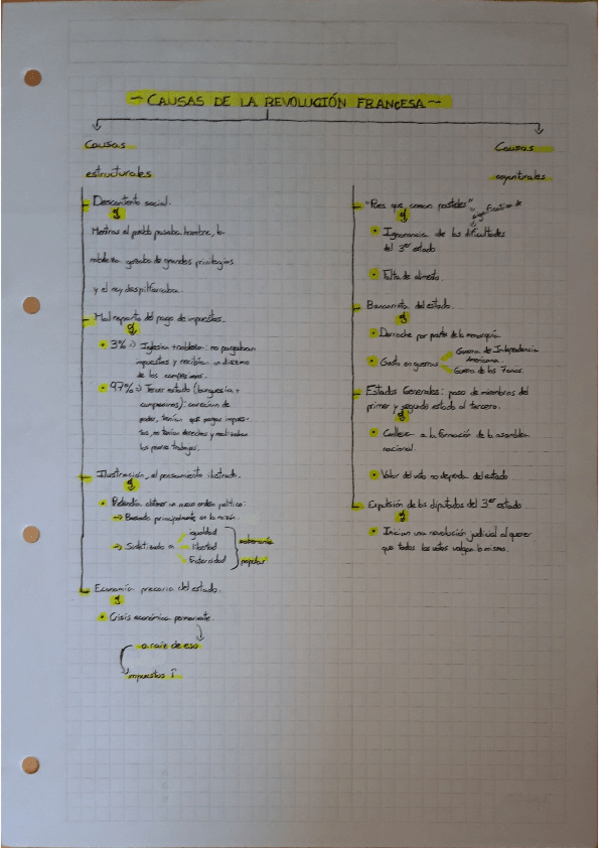 - CAUSAS DE LA REVOLUCIÓN FRANCESA -
Causas
estructurales
Descontento social.
Mientras el pueblo pasaba hambre, la
nobleza gozaba de grandes privilegios
y el rey despilfarraba.
Mal reparto del pago de impuestos.
3% => Iglesia + nobleza: no pagaban
impuestos y recibían un diezmo
de los campesinos.
97% => Tercer estado (burguesía +
campesinos): carecían de
poder, tenían que pagar impues-
tos, no tenían derechos y realizaban
los peores trabajos.
Ilustración, el pensamiento ilustrado.
Pretendía obtener un nuevo orden político:
→ Basado principalmente en la razón.
→ Sintetizado en
igualdad
libertad
fraternidad
soberanía
popular
Economía precaria del estado.
Crisis económica permanente.
a raíz de eso
impuestos ↑
Causas
coyunturales
"Pues que coman pasteles"
significativo de
Ignorancia de las dificultades
del 3er estado
Falta de alimento.
Bancarrota del estado.
Derroche por parte de la monarquía.
Gasto en guerras
Guerra de Independencia
Americana
Guerra de los 7 años.
Estados Generales: paso de miembros del
primer y segundo estado al tercero.
Conlleva a la formación de la asamblea
nacional.
Valor del voto no dependa del estado
Expulsión de los diputados del 3er estado.
Inician una revolución judicial al querer
que todos los votos valgan lo mismo.